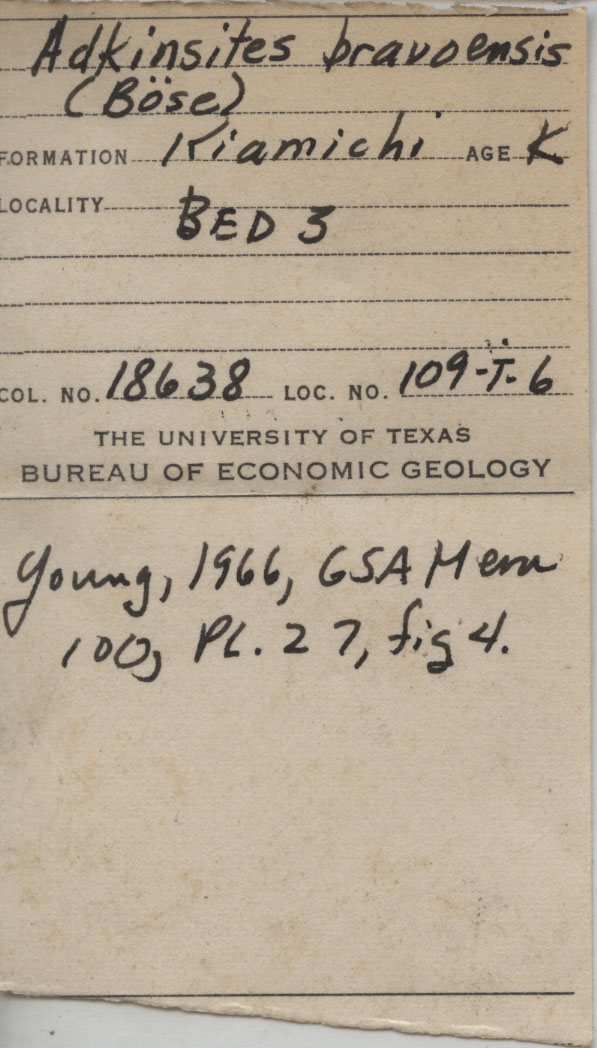 Adkinsites bravoensis
(Böse)
FORMATION Kiamichi AGE K
LOCALITY BED 3
COL. NO. 18638 LOC. NO. 109-T-6
THE UNIVERSITY OF TEXAS
BUREAU OF ECONOMIC GEOLOGY
Young, 1966, GSA Mem
100, Pl. 27, fig 4.